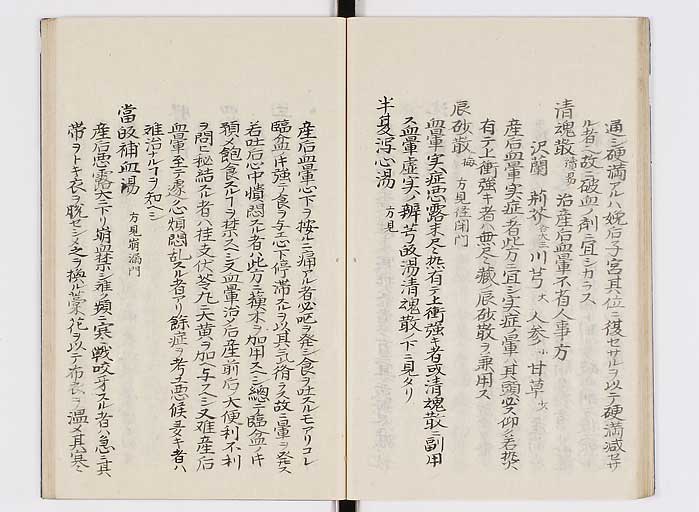 通シ硬満アルハ娩后子宮其位ニ復セサルヲ以テ硬満減セサ
ル者ハ改ニ破血ノ剤ニ宜シカラス
清魂散 治産后血暈不省人事方
沢蘭 荊芥 川芎 大 人参 小 甘草 少
産后血暈実症者此方ニ宜シ実症ノ暈ハ其頭必ス仰ク若熱
有テ上衝強キ者ハ無尽蔵辰砂散ヲ兼用ス
辰砂散 方見経閉門
血暈実症悪露未尽熱有テ上衝強キ者或清魂散ニ副用
ス血暈虚実ノ辨芎帰湯清魂散ノ下ニ見タリ
半夏瀉心湯 方見
産后血暈心下ヲ按ルニ痛アル者必嘔ヲ発シ食ヲ吐スルモアリコレ
臨盆ノ時強テ食ヲ与ヘ心下停滞スルヲ以其気イ脩ラス故ニ暈ヲ発ス
若吐后心中憒悶スル者ハ此方ニ檳榔ヲ加用スヘシ総テ臨盆ノ時
預メ飽食スル事ヲ禁スヘシ又血暈治シ后産前后大便利不利
ヲ問ヒ秘結スル者ハ桂支伏苓丸ニ大黄ヲ加ヘ与スヘシ又难産后
血暈至テ劇ク心煩悶乱スル者アリ餘症ヲ考エ悪候多キ者ハ
难治ナル事ヲ知ヘシ
當帰補血湯 方見崩漏門
産后悪露大ニ下リ崩血禁シ难ノ類ニ寒戦咬牙スル者ハ急ニ其
帯ヲトキ衣ヲ脱セシメ之ヲ換ル藁花ヲ以テ布衣ヲ温メ其寒